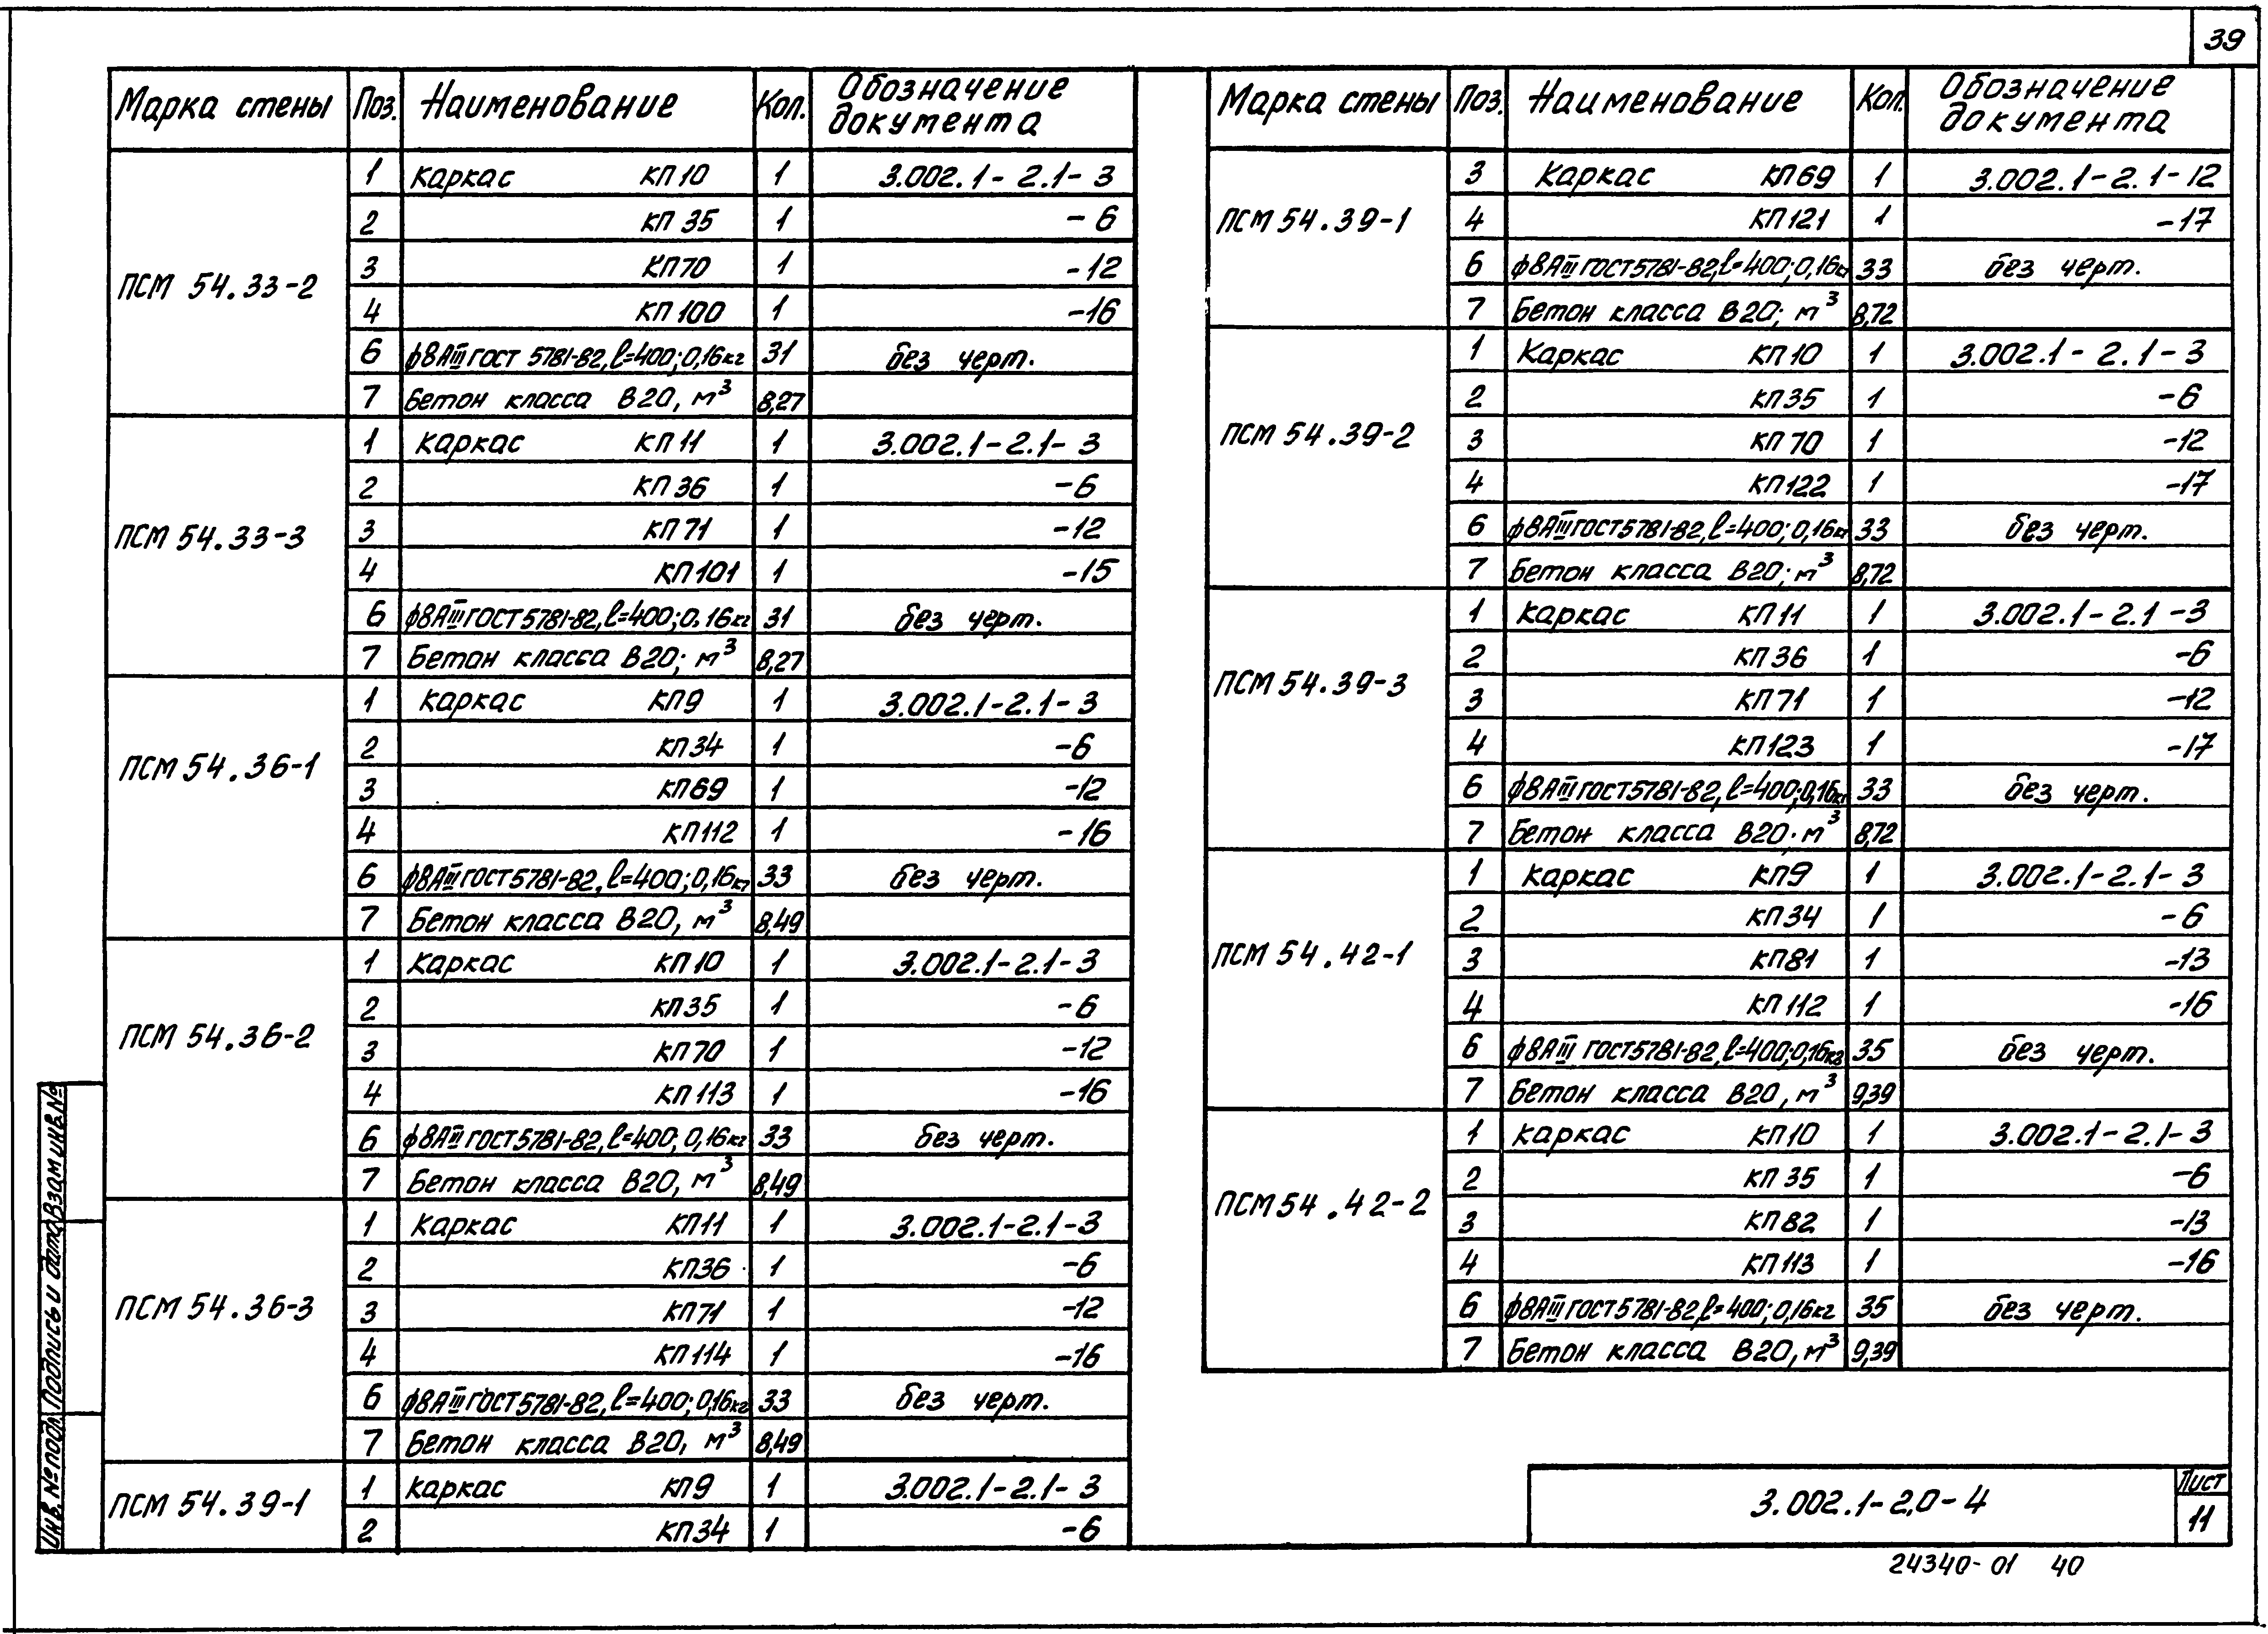 39
Марка стены Поз. Наименование Кол. Обозначение документа
ПСМ 54.33-2
1 Каркас КП10 1 3.002.1-2.1-3
2 КП35 1 -6
3 КП70 1 -12
4 КП100 1 -16
6 ф8АIII ГОСТ 5781-82, l=400; 0,16кг 31 без черт.
7 Бетон класса В20, м³ 8,27
ПСМ 54.33-3
1 Каркас КП11 1 3.002.1-2.1-3
2 КП36 1 -6
3 КП71 1 -12
4 КП101 1 -15
6 ф8АIII ГОСТ 5781-82, l=400; 0,16кг 31 без черт.
7 Бетон класса В20; м³ 8,27
ПСМ 54.36-1
1 Каркас КП9 1 3.002.1-2.1-3
2 КП34 1 -6
3 КП69 1 -12
4 КП112 1 -16
6 ф8АIII ГОСТ 5781-82, l=400; 0,16кг 33 без черт.
7 Бетон класса В20, м³ 8,49
ПСМ 54.36-2
1 Каркас КП10 1 3.002.1-2.1-3
2 КП35 1 -6
3 КП70 1 -12
4 КП113 1 -16
6 ф8АIII ГОСТ 5781-82, l=400; 0,16кг 33 без черт.
7 Бетон класса В20, м³ 8,49
ПСМ 54.36-3
1 Каркас КП11 1 3.002.1-2.1-3
2 КП36 1 -6
3 КП71 1 -12
4 КП114 1 -16
6 ф8АIII ГОСТ 5781-82, l=400; 0,16кг 33 без черт.
7 Бетон класса В20, м³ 8,49
ПСМ 54.39-1
1 Каркас КП9 1 3.002.1-2.1-3
2 КП34 1 -6
Марка стены Поз. Наименование Кол. Обозначение документа
ПСМ 54.39-1
3 Каркас КП69 1 3.002.1-2.1-12
4 КП121 1 -17
6 ф8АIII ГОСТ 5781-82, l=400; 0,16кг 33 без черт.
7 Бетон класса В20; м³ 8,72
ПСМ 54.39-2
1 Каркас КП10 1 3.002.1-2.1-3
2 КП35 1 -6
3 КП70 1 -12
4 КП122 1 -17
6 ф8АIII ГОСТ 5781-82, l=400; 0,16кг 33 без черт.
7 Бетон класса В20; м³ 8,72
ПСМ 54.39-3
1 Каркас КП11 1 3.002.1-2.1-3
2 КП36 1 -6
3 КП71 1 -12
4 КП123 1 -17
6 ф8АIII ГОСТ 5781-82, l=400; 0,16кг 33 без черт.
7 Бетон класса В20. м³ 8,72
ПСМ 54.42-1
1 Каркас КП9 1 3.002.1-2.1-3
2 КП34 1 -6
3 КП81 1 -13
4 КП112 1 -16
6 ф8АIII ГОСТ 5781-82, l=400; 0,16кг 35 без черт.
7 Бетон класса В20, м³ 9,39
ПСМ 54.42-2
1 Каркас КП10 1 3.002.1-2.1-3
2 КП35 1 -6
3 КП82 1 -13
4 КП113 1 -16
6 ф8АIII ГОСТ 5781-82, l=400; 0,16кг 35 без черт.
7 Бетон класса В20, м³ 9,39
Инв. № подл. Подпись и дата Взам инв. №
3.002.1-2.0-4
Лист
11
24340-01 40